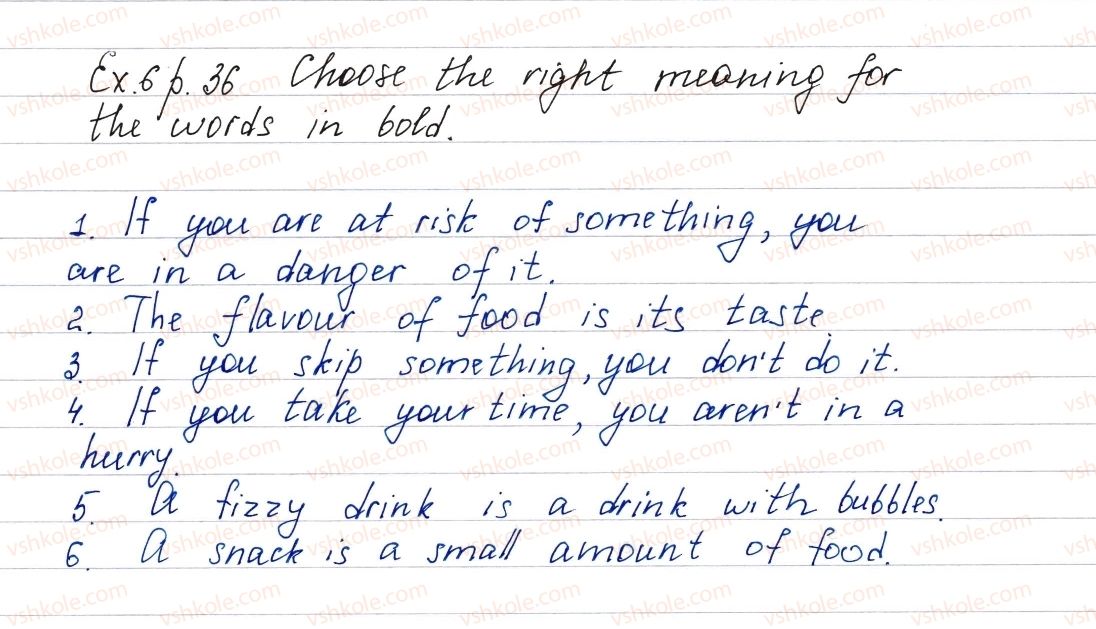 Ex.6 p. 36 Choose the right meaning for
the words in bold.
1. If you are at risk of something, you
are in a danger of it.
2. The flavour of food is its taste.
3. If you skip something, you don't do it.
4. If you take your time, you aren't in a
hurry.
5. A fizzy drink is a drink with bubbles.
6. A snack is a small amount of food.